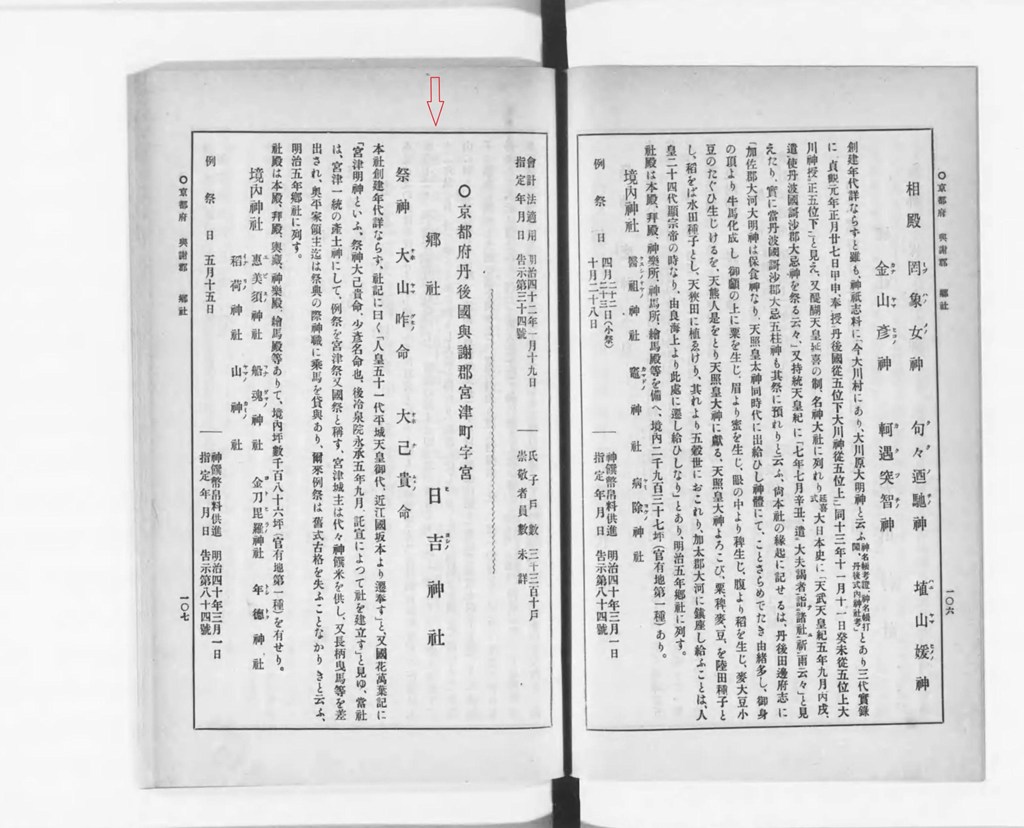 〇京都府 與謝郡 鄕社
一〇六
相殿 罔象女神 句々迺馳神 埴山媛神
金山彥神 軻遇突智神
創建年代詳ならずと雖も、神祇志料に「今大川村にあり、大川原大明神と云ふ、とあり三代實錄
に「貞觀元年正月廿七日甲申、奉授丹後國從五位下大川神從五位上」同十三年十一月十一日癸未從五位上大
川神授正五位下」と見え、又醍醐天皇延喜の制、名神大社に列れり延喜式大日本史に「天武天皇紀五年九月丙戌、
遣使丹波國訶沙郡大忌神を祭る云々、又持統天皇紀に「七年七月辛丑、遣大夫謁者詣諸社祈雨云々」と見
えたり、實に當丹波國訶沙郡大忌五柱神も其祭に預れりと云ふ、尙本社の緣起に記せるは、丹後田邊府志に
「加佐郡大河大明神は保食神なり、天照皇太神同時代に出給ひし神體にて、ことさらめでたき由緖多し、御身
の頂より牛馬化成し御顱の上に粟を生じ、眉より蜜を生じ、眼の中より稗生じ、腹より稻を生じ、麥大豆小
豆のたぐひ生じけるを、天熊人是をとり天照皇大神に獻る、天照皇大神よろこび、粟、稗、麥、豆、を陸田種子と
し、稻をば水田種子とし、天狹田に植ゑけり、其れより五穀世におこれり、加太郡大河に鎭座し給ふことは、人
皇二十四代顯宗帝の時なり、由良海上より此處に遷し給ひしなり」とあり、明治五年鄕社に列す。
社殿は本殿、拜殿、神樂所、神馬所、繪馬殿等を備へ、境內二千九百三十七坪(官有地第一種)あり。
境內神社 醫祖神社 竈神社 病除神社
例祭日 四月二十三日(小祭)
十月二十八日
神饌幣帛料供進 明治四十年三月一日
指定年月日 告示第八十四號
會計法適用 明治四十二年一月十九日
指定年月日 告示第三十四號
氏子戶數 三千三百十戶
崇敬者員數 未詳
〇京都府丹後國與謝郡宮津町字宮
鄕社 日吉神社
祭神 大山咋命 大己貴命
本社創建年代詳ならず、社記に曰く「人皇五十一代平城天皇御代、近江國坂本より遷奉す」と、又國花萬葉記に
「宮津明神といふ、祭神大己貴命、少彥名命也、後冷泉院永承五年九月、託宣によつて社を建立す」と見ゆ、當社
は、宮津一統の產土神にして、例祭を宮津祭又國祭と稱す、宮津城主は代々神饌米を供し、又長柄曳馬等を差
出され、奧平家領主迄は祭典の際神職に乘馬を貸與あり、爾來例祭は舊式古格を失ふことなかりきと云ふ、
明治五年鄕社に列す。
社殿は本殿、拜殿、輿藏、神樂殿、繪馬殿等ありて、境內坪數千百八十六坪(官有地第一種)を有せり。
境內神社 惠美須神社 船魂神社 金刀毘羅神社 年德神社
稻荷神社 山神社
例祭日 五月十五日
神饌幣帛料供進 明治四十年三月一日
指定年月日 告示第八十四號
〇京都府 與謝郡 鄕社
一〇七